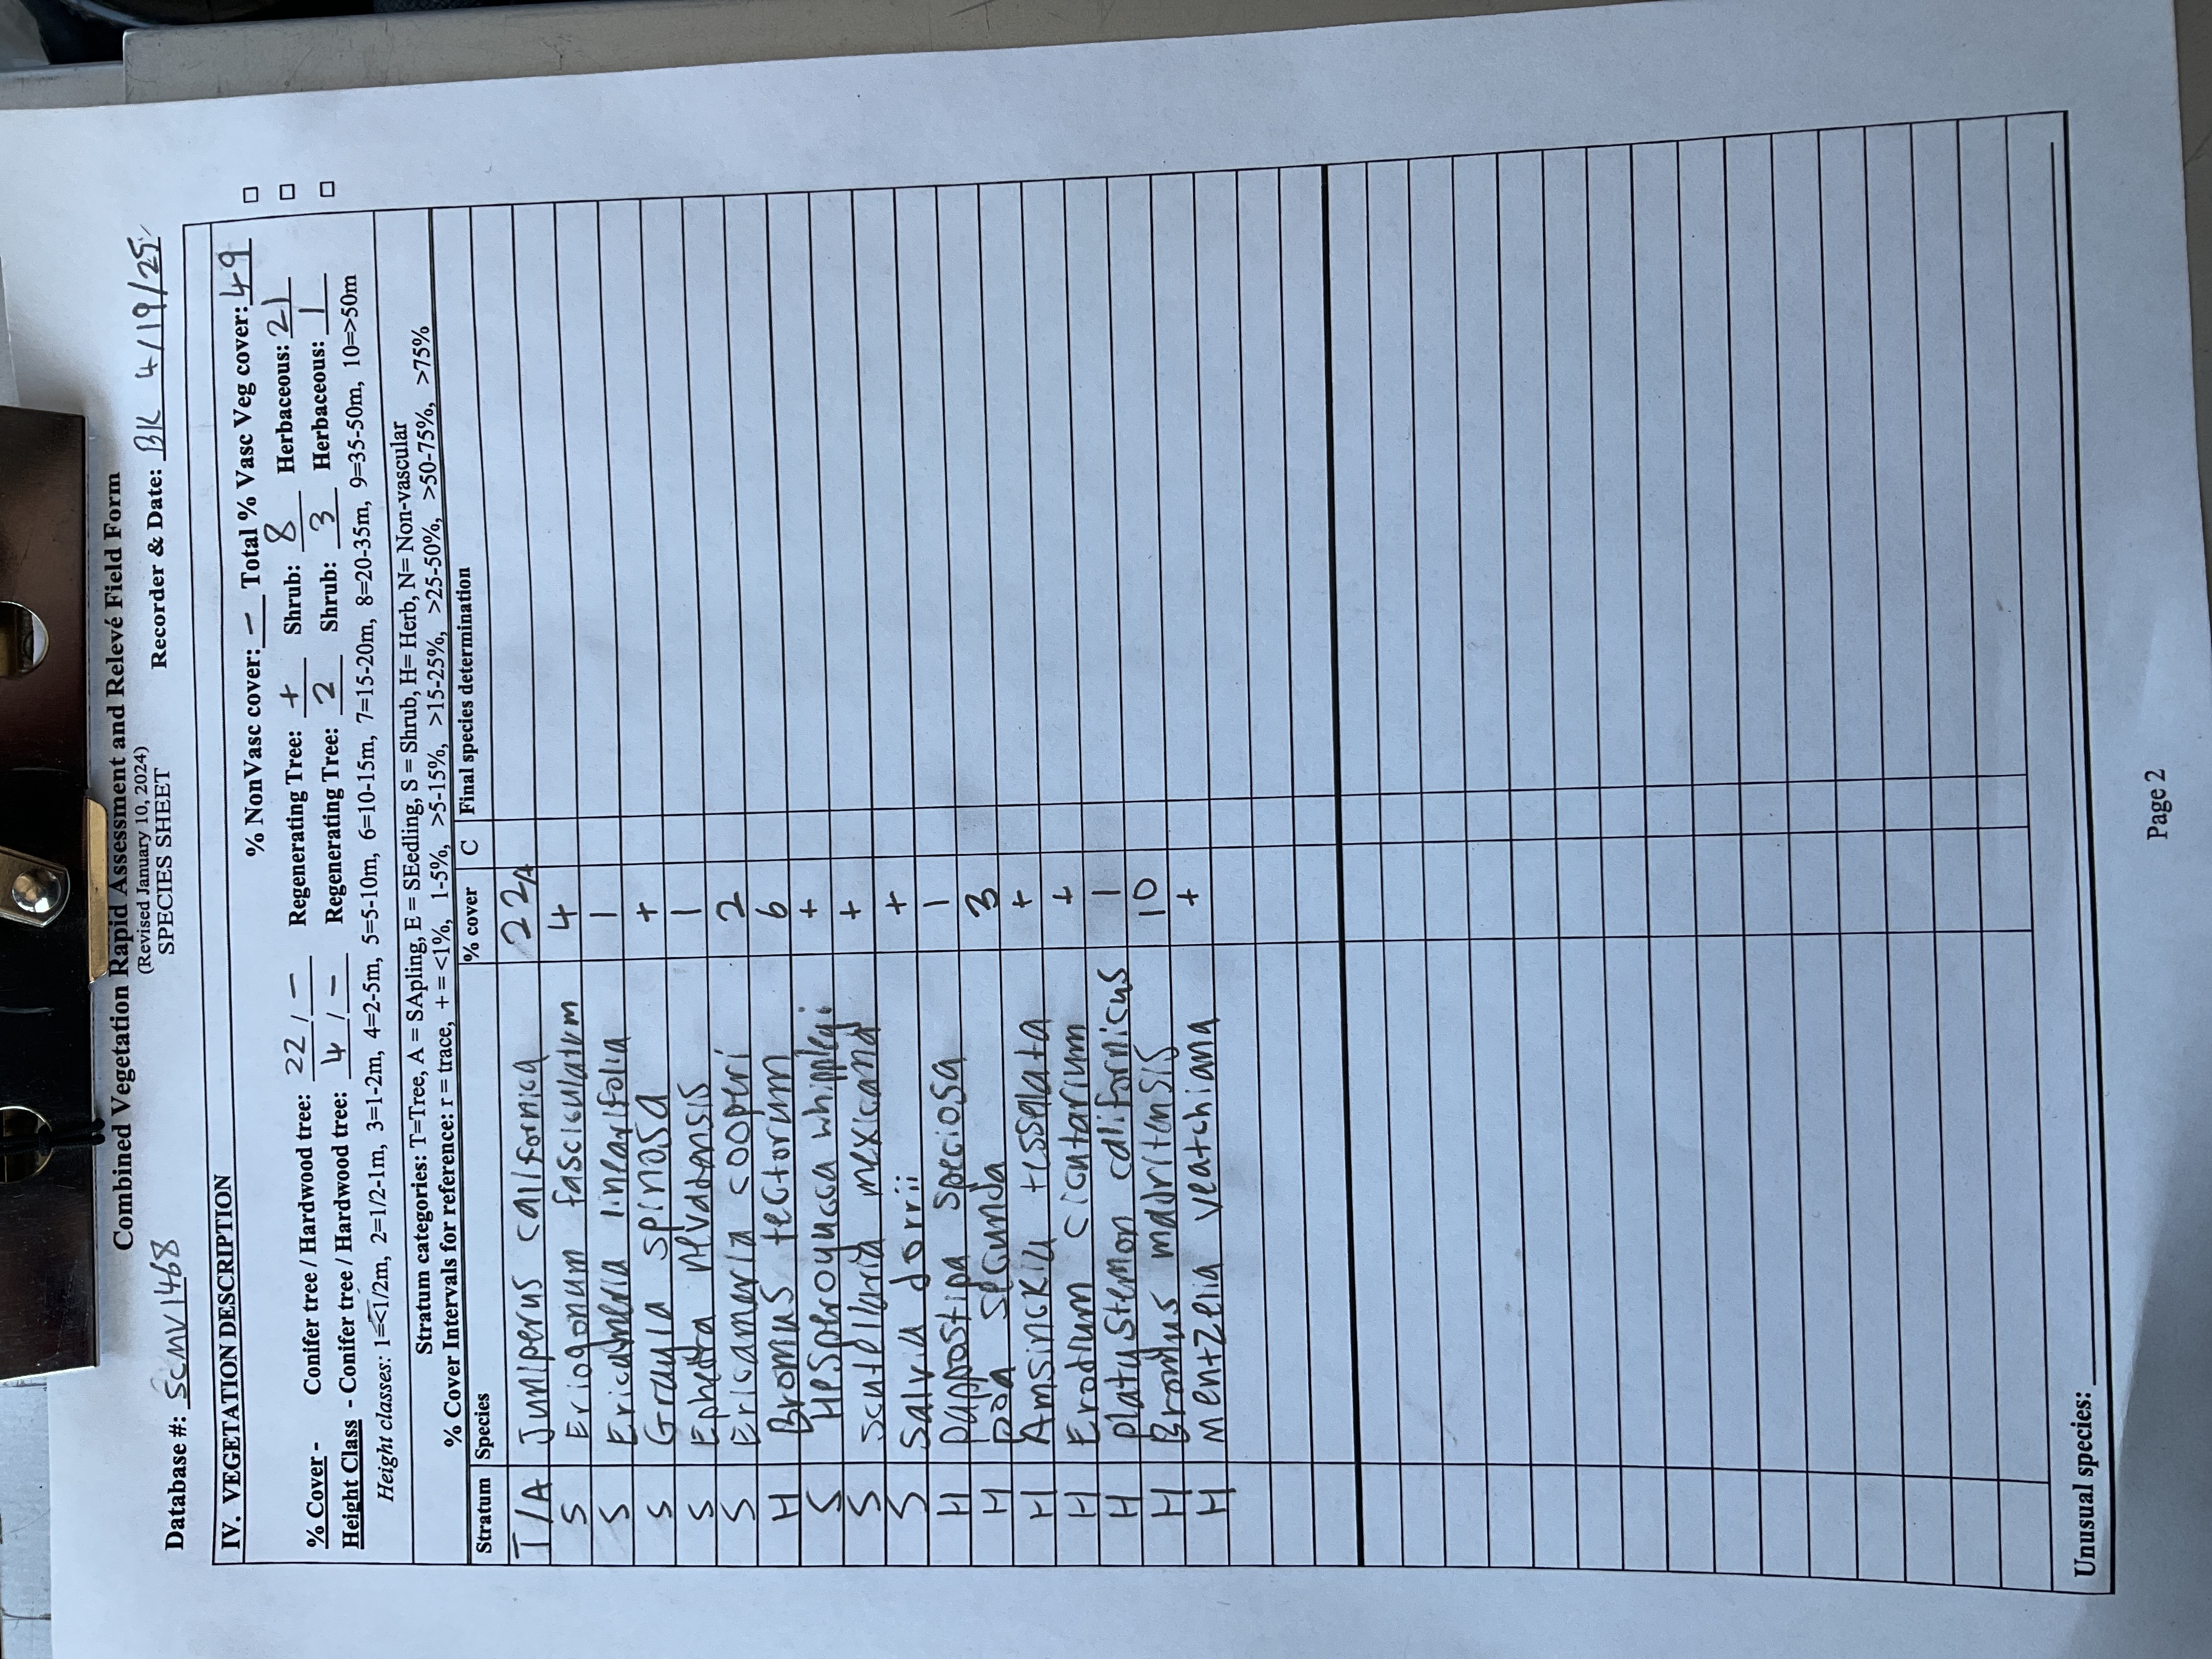 Combined Vegetation Rapid Assessment and Relevé Field Form
(Revised January 10, 2024)
SPECIES SHEET
Database #: SCMV1468 Recorder & Date: BK 4/19/25
IV. VEGETATION DESCRIPTION
% NonVasc cover: - Total % Vasc Veg cover: 49
% Cover - Conifer tree / Hardwood tree: 22 / - Regenerating Tree: + Shrub: 8 Herbaceous: 21
Height Class - Conifer tree / Hardwood tree: 4 / - Regenerating Tree: 2 Shrub: 3 Herbaceous: 1
Height classes: 1=<1/2m, 2=1/2-1m, 3=1-2m, 4=2-5m, 5=5-10m, 6=10-15m, 7=15-20m, 8=20-35m, 9=35-50m, 10=>50m
Stratum categories: T=Tree, A = SApling, E = SEedling, S = Shrub, H= Herb, N= Non-vascular
% Cover Intervals for reference: r = trace, + = <1%, 1-5%, >5-15%, >15-25%, >25-50%, >50-75%, >75%
Stratum Species % cover C Final species determination
T/A Juniperus californica 22/+
S Eriogonum fasciculatum 4
S Ericameria linearifolia 1
S Grayia spinosa +
S Ephedra nevadensis 1
S Ericameria cooperi 2
H Bromus tectorum 6
S Hesperoyucca whipplei +
S Scutellaria mexicana +
S Salvia dorrii +
H Pappostipa speciosa 1
H Poa secunda 3
H Amsinckia tessellata +
H Erodium cicutarium +
H Platystemon californicus 1
H Bromus madritensis 10
H Mentzelia veatchiana +
Unusual species:
Page 2